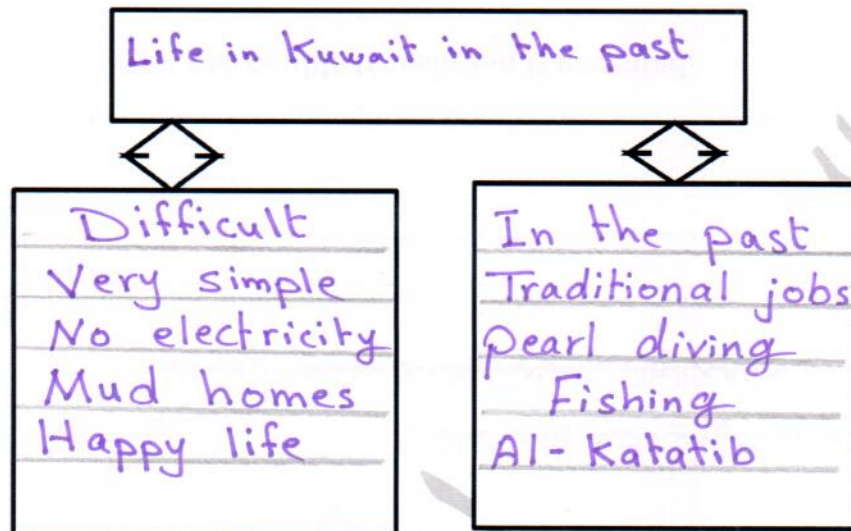 Life in Kuwait in the past
Difficult
Very simple
No electricity
Mud homes
Happy life
In the past
Traditional jobs
pearl diving
Fishing
Al-Katatib